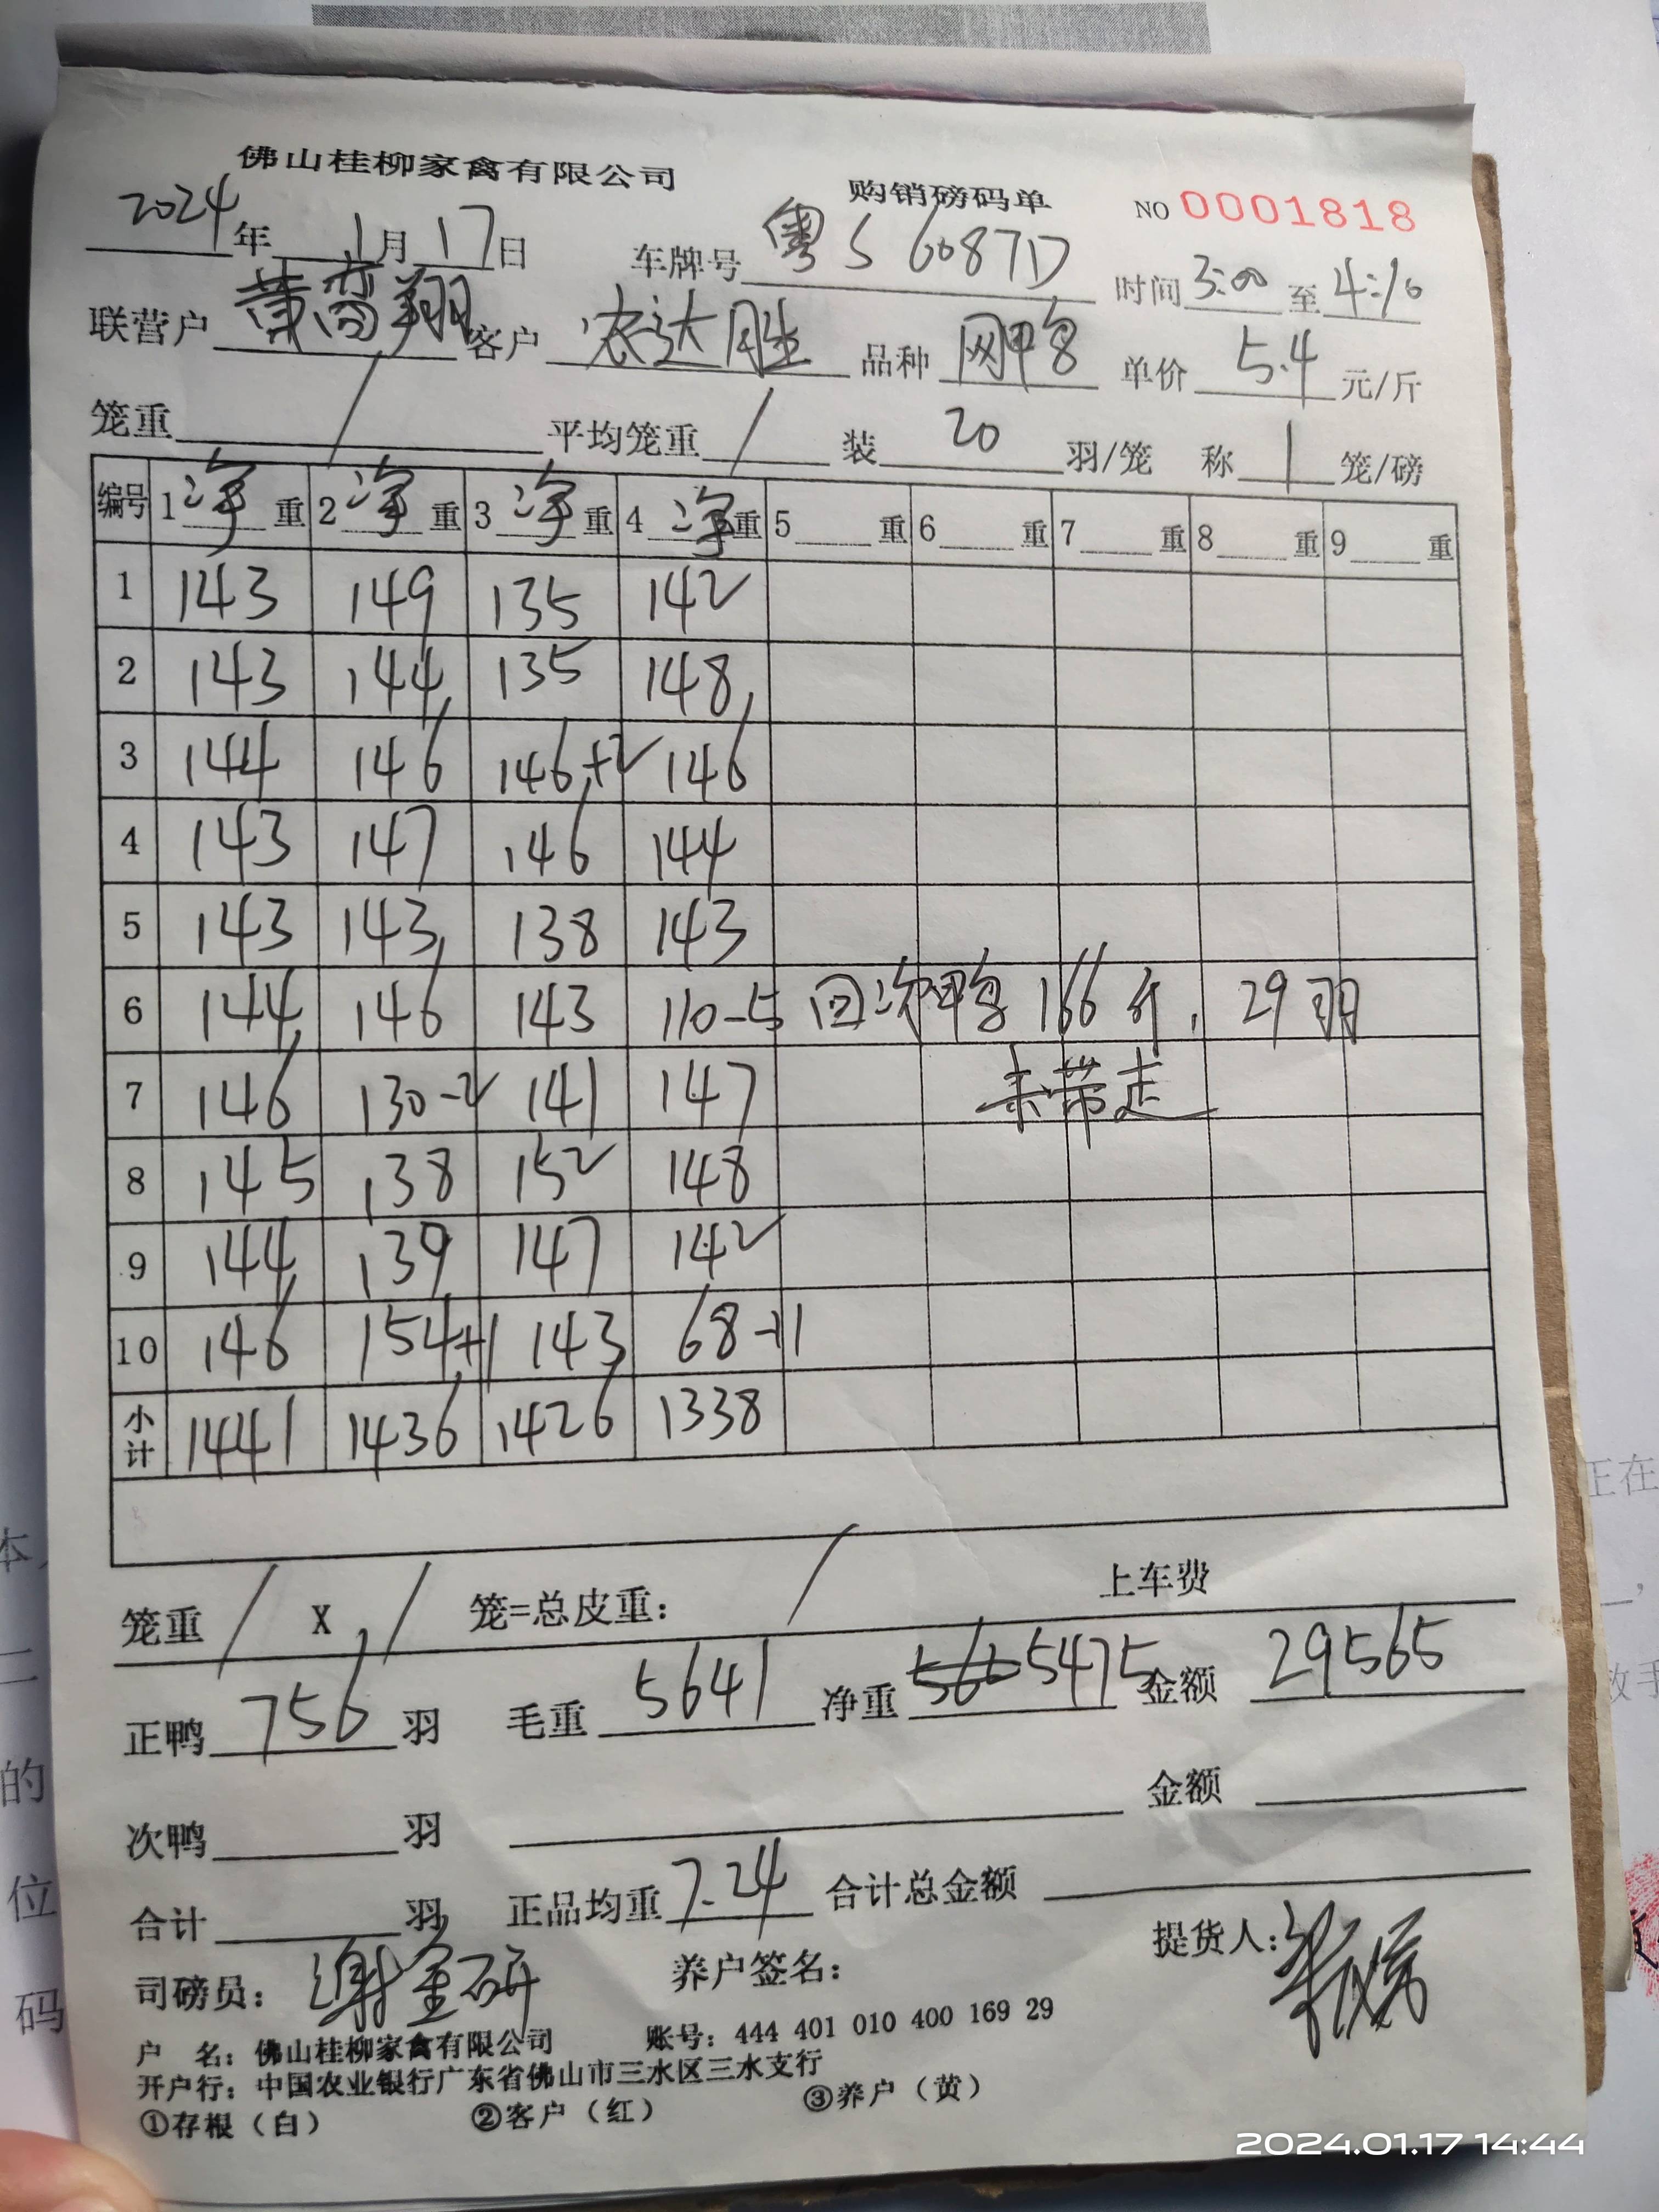 佛山桂柳家禽有限公司 购销磅码单 NO 0001818
2024年 1月 17日 车牌号 粤S 6087D 时间 3:00 至 4:10
联营户 黄 翔 客户 农达胜 品种 网鸭 单价 5.4 元/斤
笼重 / 平均笼重 / 装 20 羽/笼 称 1 笼/磅
编号 1 净 重 2 净 重 3 净 重 4 净 重 5 重 6 重 7 重 8 重 9 重
1 143 149 135 142
2 143 144 135 148
3 144 146 146+2 146
4 143 147 146 144
5 143 143 138 143
6 144 146 143 110-5 回次鸭 166斤, 29羽
7 146 130-2 141 147 未带走
8 145 138 152 148
9 144 139 147 142
10 146 154+1 143 68-11
小计 1441 1436 1426 1338
笼重 / X / 笼=总皮重: / 上车费
正鸭 756 羽 毛重 5641 净重 5475 金额 29565
次鸭 羽 金额
合计 羽 正品均重 7.24 合计总金额
司磅员: 谢金研 养户签名: 提货人:
户 名: 佛山桂柳家禽有限公司 账号: 444 401 010 400 169 29
开户行: 中国农业银行广东省佛山市三水区三水支行
①存根（白） ②客户（红） ③养户（黄）
正在
本
二
的
位
码
2024.01.17 14:44